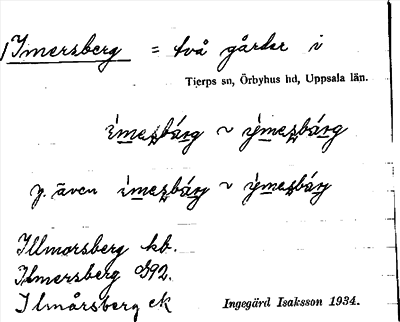 Ymersberg = två gårdar i
Tierps sn, Örbyhus hd, Uppsala län.
ímesbárg ~ ýmesbárg
y. även ímesbárg ~ ýmesbárg
Illmorsberg kb.
Ilmersberg
Ilmårsberg ek
Ingegärd Isaksson 1934.